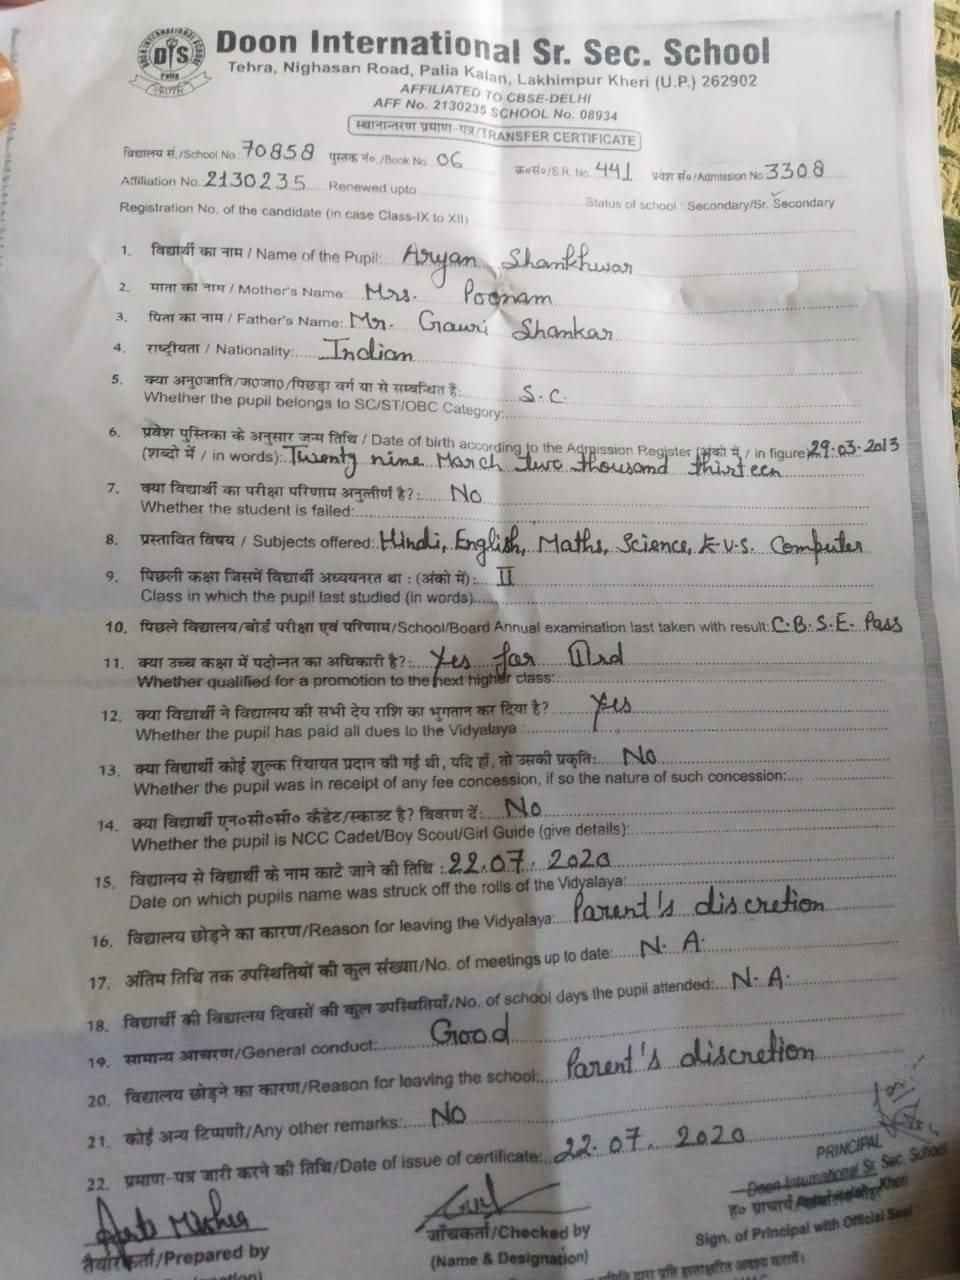 DOON INTERNATIONAL SCHOOL
DIS
Palia
TRUTH
Doon International Sr. Sec. School
Tehra, Nighasan Road, Palia Kalan, Lakhimpur Kheri (U.P.) 262902
AFFILIATED TO CBSE-DELHI
AFF No. 2130235 SCHOOL No. 08934
स्थानान्तरण प्रमाण-पत्र/TRANSFER CERTIFICATE
विद्यालय सं./School No. 70858 पुस्तक नं०./Book No. 06 क्र०सं०/S.R. No. 441 प्रवेश सं०/Admission No 3308
Affiliation No. 2130235 Renewed upto Status of school : Secondary/Sr. Secondary
Registration No. of the candidate (in case Class-IX to XII)
1. विद्यार्थी का नाम / Name of the Pupil: Aryan Shankhwar
2. माता का नाम / Mother's Name: Mrs. Poonam
3. पिता का नाम / Father's Name: Mr. Gauri Shankar
4. राष्ट्रीयता / Nationality: Indian
5. क्या अनु०जाति/ज०जा०/पिछड़ा वर्ग या से सम्बन्धित हैं: S.C.
Whether the pupil belongs to SC/ST/OBC Category:
6. प्रवेश पुस्तिका के अनुसार जन्म तिथि / Date of birth according to the Admission Register (अंको में / in figure) 29.03.2013
(शब्दो में / in words): Twenty nine March two thousand thirteen
7. क्या विद्यार्थी का परीक्षा परिणाम अनुर्लीण है?: No
Whether the student is failed:
8. प्रस्तावित विषय / Subjects offered: Hindi, English, Maths, Science, E.V.S. Computer
9. पिछली कक्षा जिसमें विद्यार्थी अध्ययनरत था : (अंको में): II
Class in which the pupil last studied (in words)
10. पिछले विद्यालय/बोर्ड परीक्षा एवं परिणाम/School/Board Annual examination last taken with result: C.B.S.E. Pass
11. क्या उच्च कक्षा में पदोन्नत का अधिकारी है?: Yes for IIIrd
Whether qualified for a promotion to the next higher class:
12. क्या विद्यार्थी ने विद्यालय की सभी देय राशि का भुगतान कर दिया है? Yes
Whether the pupil has paid all dues to the Vidyalaya :
13. क्या विद्यार्थी कोई शुल्क रियायत प्रदान की गई थी, यदि हाँ, तो उसकी प्रकृति: No
Whether the pupil was in receipt of any fee concession, if so the nature of such concession:
14. क्या विद्यार्थी एन०सी०सी० कैडेट/स्काउट है? विवरण दें: No
Whether the pupil is NCC Cadet/Boy Scout/Girl Guide (give details):
15. विद्यालय से विद्यार्थी के नाम काटे जाने की तिथि : 22.07.2020
Date on which pupils name was struck off the rolls of the Vidyalaya:
16. विद्यालय छोड़ने का कारण/Reason for leaving the Vidyalaya: Parent's discretion
17. अंतिम तिथि तक उपस्थितियों की कुल संख्या/No. of meetings up to date: N.A.
18. विद्यार्थी की विद्यालय दिवसों की कुल उपस्थितियाँ/No. of school days the pupil attended: N.A.
19. सामान्य आचरण/General conduct: Good
20. विद्यालय छोड़ने का कारण/Reason for leaving the school: Parent's discretion
21. कोई अन्य टिप्पणी/Any other remarks: No
22. प्रमाण-पत्र जारी करने की तिथि/Date of issue of certificate: 22.07.2020
PRINCIPAL
Doon International Sr. Sec. School
Mishra
तैयारकर्ता/Prepared by
जाँचकर्ता/Checked by
(Name & Designation)
ह० प्राचार्य Kheri
Sign. of Principal with Official Seal
द्वारा प्रति हस्ताक्षरित अवश्य करायें।